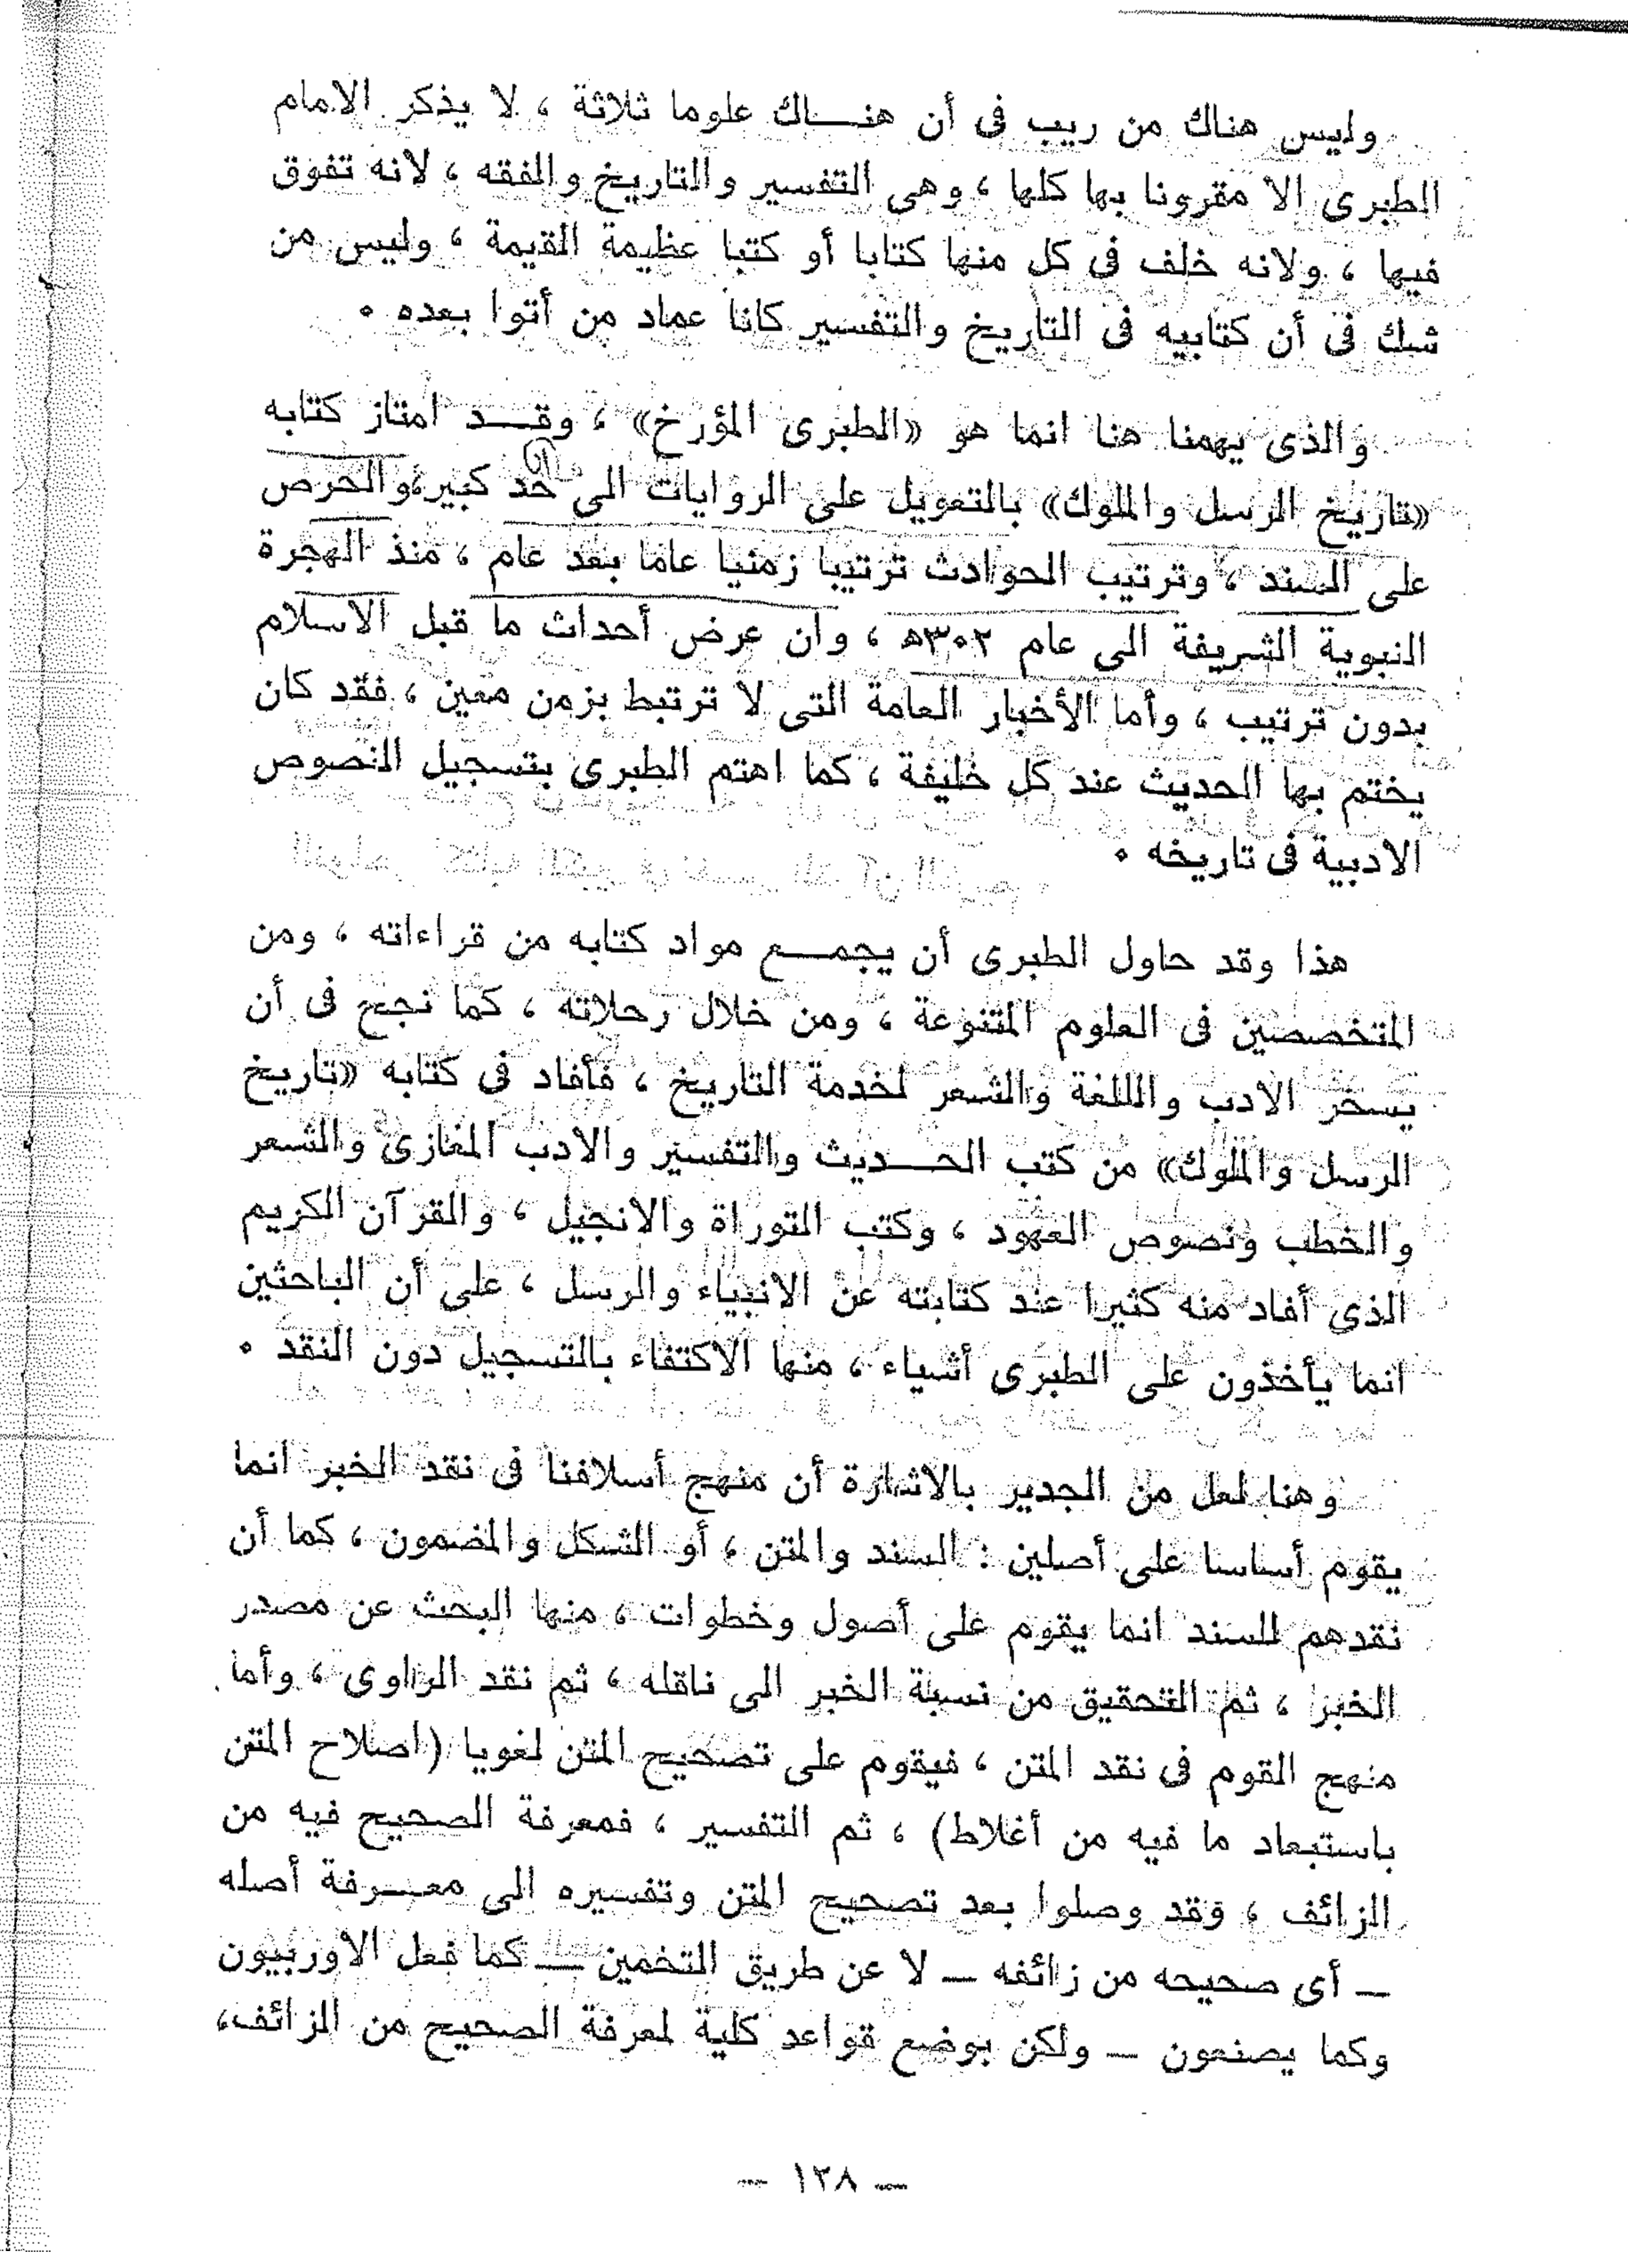 وليس هناك من ريب فى أن هنـــاك علوما ثلاثة ، لا يذكر الامام
الطبرى الا مقرونا بها كلها ، وهى التفسير والتاريخ والفقه ، لانه تفوق
فيها ، ولانه خلف فى كل منها كتابا أو كتبا عظيمة القيمة ، وليس من
شك فى أن كتابيه فى التاريخ والتفسير كانا عماد من أتوا بعده ٠
والذى يهمنا هنا انما هو «الطبرى المؤرخ» ، وقـــد امتاز كتابه
«تاريخ الرسل والملوك» بالتعويل على الروايات الى حد كبير، والحرص
على السند ، وترتيب الحوادث ترتيبا زمنيا عاما بعد عام ، منذ الهجرة
النبوية الشريفة الى عام ٣٠٢هـ ، وان عرض أحداث ما قبل الاسلام
بدون ترتيب ، وأما الأخبار العامة التى لا ترتبط بزمن معين ، فقد كان
يختم بها الحديث عند كل خليفة ، كما اهتم الطبرى بتسجيل النصوص
الادبية فى تاريخه ٠
هذا وقد حاول الطبرى أن يجمـــع مواد كتابه من قراءاته ، ومن
المتخصصين فى العلوم المتنوعة ، ومن خلال رحلاته ، كما نجح فى أن
يسخر الادب واللغة والشعر لخدمة التاريخ ، فأفاد فى كتابه «تاريخ
الرسل والملوك» من كتب الحـــديث والتفسير والادب المغازى والشعر
والخطب ونصوص العهود ، وكتب التوراة والانجيل ، والقرآن الكريم
الذى أفاد منه كثيرا عند كتابته عن الانبياء والرسل ، على أن الباحثين
انما يأخذون على الطبرى أشياء ، منها الاكتفاء بالتسجيل دون النقد ٠
وهنا لعل من الجدير بالاشارة أن منهج أسلافنا فى نقد الخبر انما
يقوم أساسا على أصلين : السند والمتن ، أو الشكل والمضمون ، كما أن
نقدهم للسند انما يقوم على أصول وخطوات ، منها البحث عن مصدر
الخبر ، ثم التحقيق من نسبة الخبر الى ناقله ، ثم نقد الراوى ، وأما
منهج القوم فى نقد المتن ، فيقوم على تصحيح المتن لغويا (اصلاح المتن
باستبعاد ما فيه من أغلاط) ، ثم التفسير ، فمعرفة الصحيح فيه من
الزائف ، وقد وصلوا بعد تصحيح المتن وتفسيره الى معـــرفة أصله
ــ أى صحيحه من زائفه ــ لا عن طريق التخمين ــ كما فعل الاوربيون
وكما يصنعون ــ ولكن بوضع قواعد كلية لمعرفة الصحيح من الزائف،
ــ ١٢٨ ــ